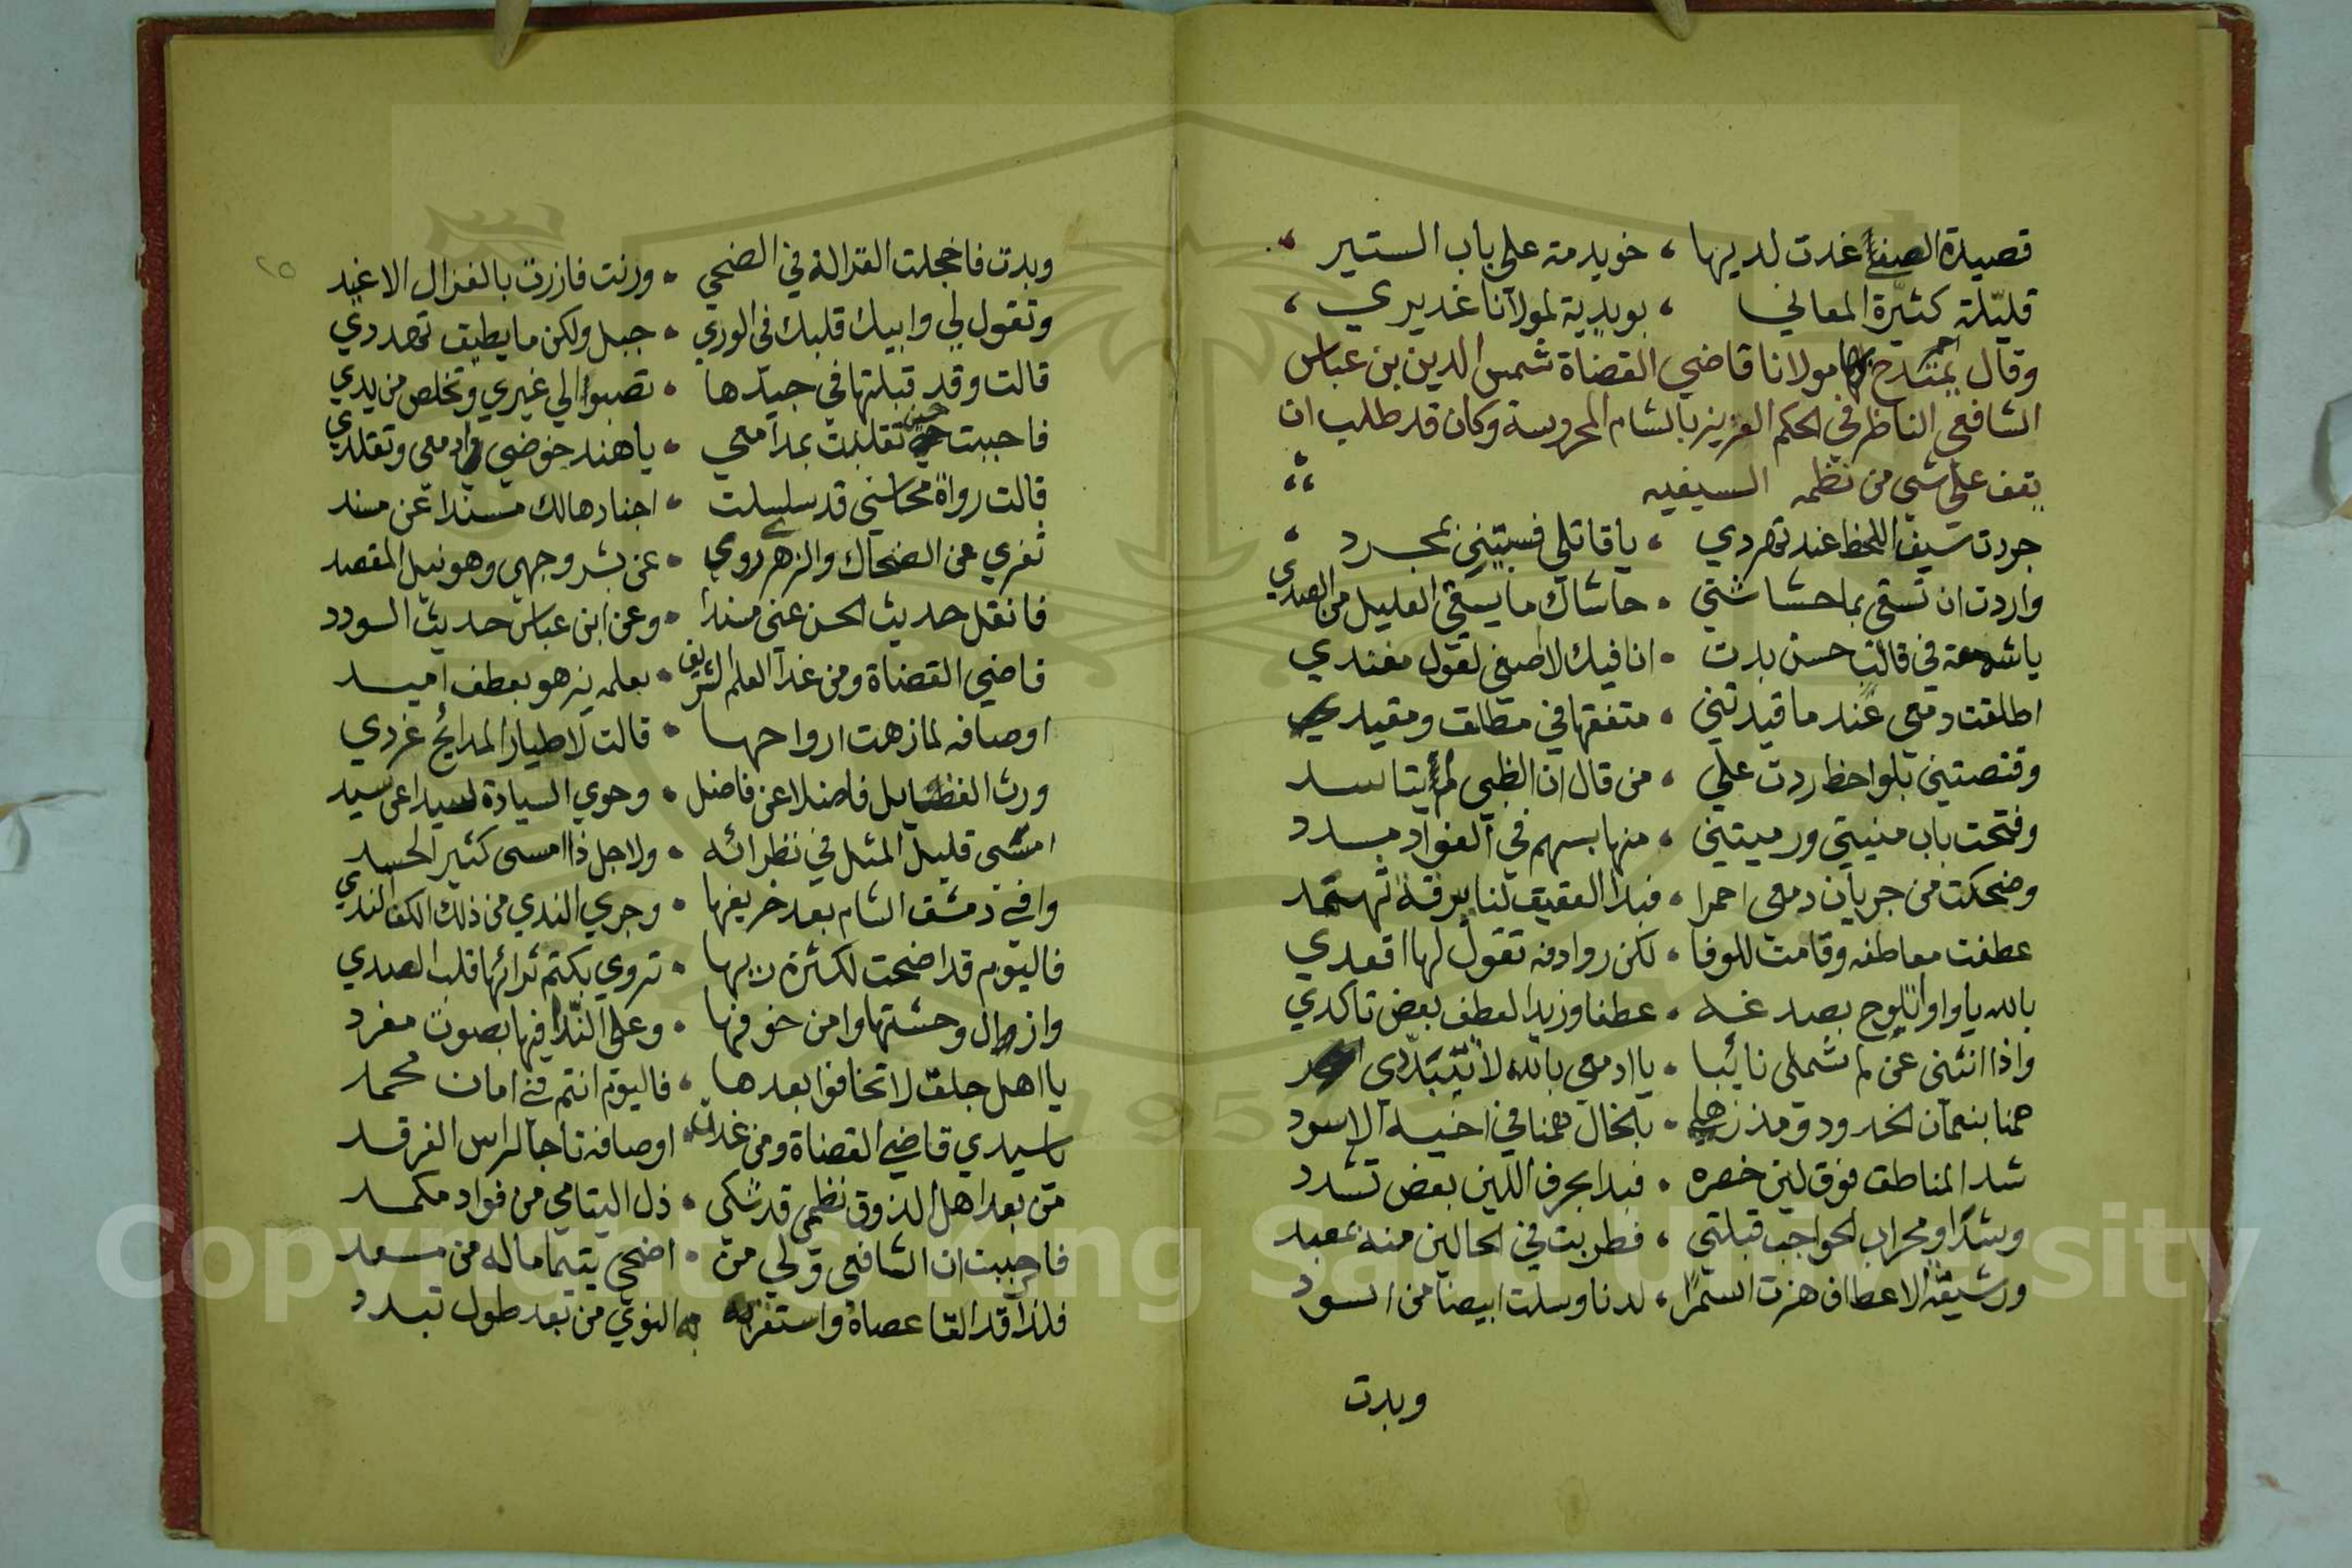 قصيدة الصفي غدت لديها ، خويدمة على باب الستير ،
قليلة كثيرة المعاني ، بويدية لمولانا غديري ،
وقال يمتدح مولانا قاضي القضاة شمس الدين بن عباس
الشافعي الناظر في الحكم العزيز بالشام المحروسة وكان قد طلب ان
يقف على شي من نظمه السيفيه
جردت سيف اللحظ عند تهددي ، يا قاتلي فسبيتني بمجرد ،
واردت ان تسقى بها حشاشتي ، حاشاك ما يسقى الغليل من الصدي
يا شمعة في قالب حسن بدت ، انا فيك لا اصغي لقول مفندي
اطلقت دمعي عندما قيدتني ، متفقها في مطلق ومقيد
وقنصتيني بلواحظ ردت علي ، من قال ان الظبي لم يتاسد
وفتحت باب منيتي ورميتني ، منها بسهم في الفواد مسدد
وضحكت من جريان دمعي احمرا ، فبدا العقيق لنا ببرقة ثهمد
عطفت معاطفه وقامت للوفا ، لكن روادفه تقول لها اقعدي
بالله يا واوا تلوح بصدغه ، عطفا وزيد العطف بعض تاكدي
واذا انثنى عن لم شملي نائبا ، يا ادمعي بالله لا تتبددي
همنا بنعمان الخدود ومذ زها ، بالخال همنا في اخيه الاسود
شد المناطق فوق لين خصره ، فبدا بحرف اللين بعض تشدد
وشدا ومحراب الحواجب قبلتي ، فطربت في الحالين منه بمعبد
ورشيقة الاعطاف هزت اسمرا ، لدنا وسلت ابيضا من اسود
وبدت
٢٥
وبدت فاخجلت الغزالة في الضحي ، ورنت فازرت بالغزال الاغيد
وتقول لي وابيك قلبك في الوري ، جبل ولكن ما يطيق تهددي
قالت وقد قبلتها في جيدها ، تصبوا الي غيري وتخلص من يدي
فاجبت حين تقلبت بمدامعي ، يا هند خوضي ادمعي وتقلدي
قالت رواة محاسني قد سلسلت ، اخبارها لك مسندا عن مسند
ثغري عن الضحاك والزهر روي ، عن بشر وجهي وهو نيل المقصد
فانقل حديث الحسن عني مسندا ، وعن ابن عباس حديث السودد
قاضي القضاة ومن غدا العلم الشريف ، بعلمه يزهو بعطف اميد
اوصافه لما زهت ارواحها ، قالت لاطيار المدائح غردي
ورث الفضايل فاضلا عن فاضل ، وحوي السيادة سيدا عن سيد
امسى قليل المثل في نظرائه ، ولاجل ذا امسى كثير الحسد
وافي دمشق الشام بعد خريفها ، وجري الندي من ذلك الكف الندي
فاليوم قد اضحت لكثرة ريها ، تروي بكتم ثرائها قلب الصدي
وازال وحشتها وامن خوفها ، وعلى الندا فيها بصوت مفرد
يا اهل جلق لا تخافوا بعدها ، فاليوم انتم في امان محمد
يا سيدي قاضي القضاة ومن غدات ، اوصافه تاجا لراس الفرقد
من بعد اهل الذوق نظمي قد شكي ، ذل اليتامي من فواد مكمد
فاجبت ان الشافعي ولي من ، اضحى يتيما ماله من مسعد
فلذا قد القا عصاة واستقر به النوي من بعد طول تبدد